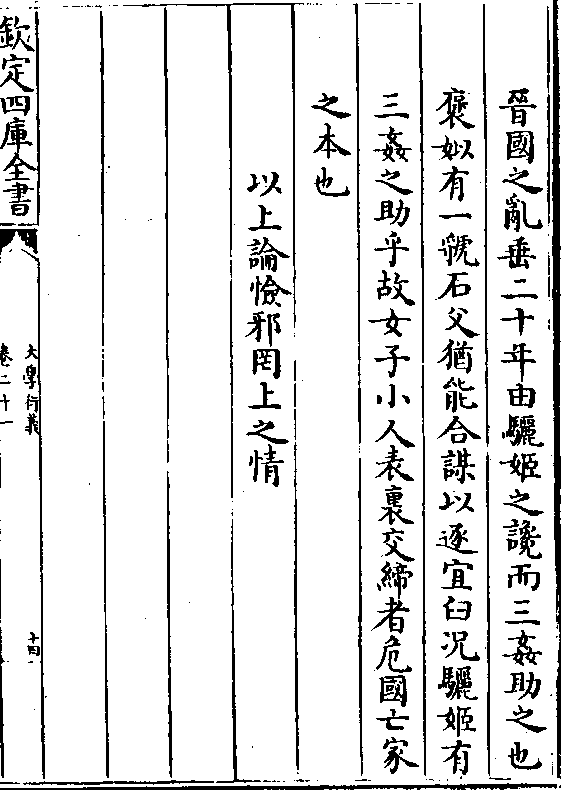 晉國之亂垂二十年由驪姬之讒而三姦助之也
褒姒有一虢石父猶能合謀以逐宜臼况驪姬有
三姦之助乎故女子小人表裏交締者危國亡家
之本也
以上論憸邪罔上之情
欽定四庫全書
大學衍義
卷二十一
十四